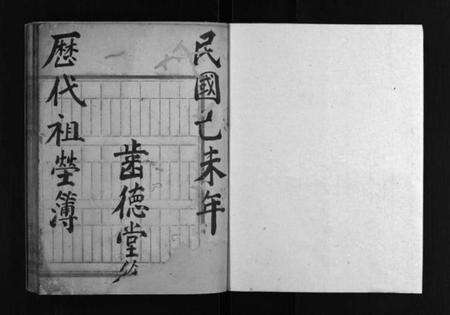 民國己未年
齒德堂
歷代祖塋簿